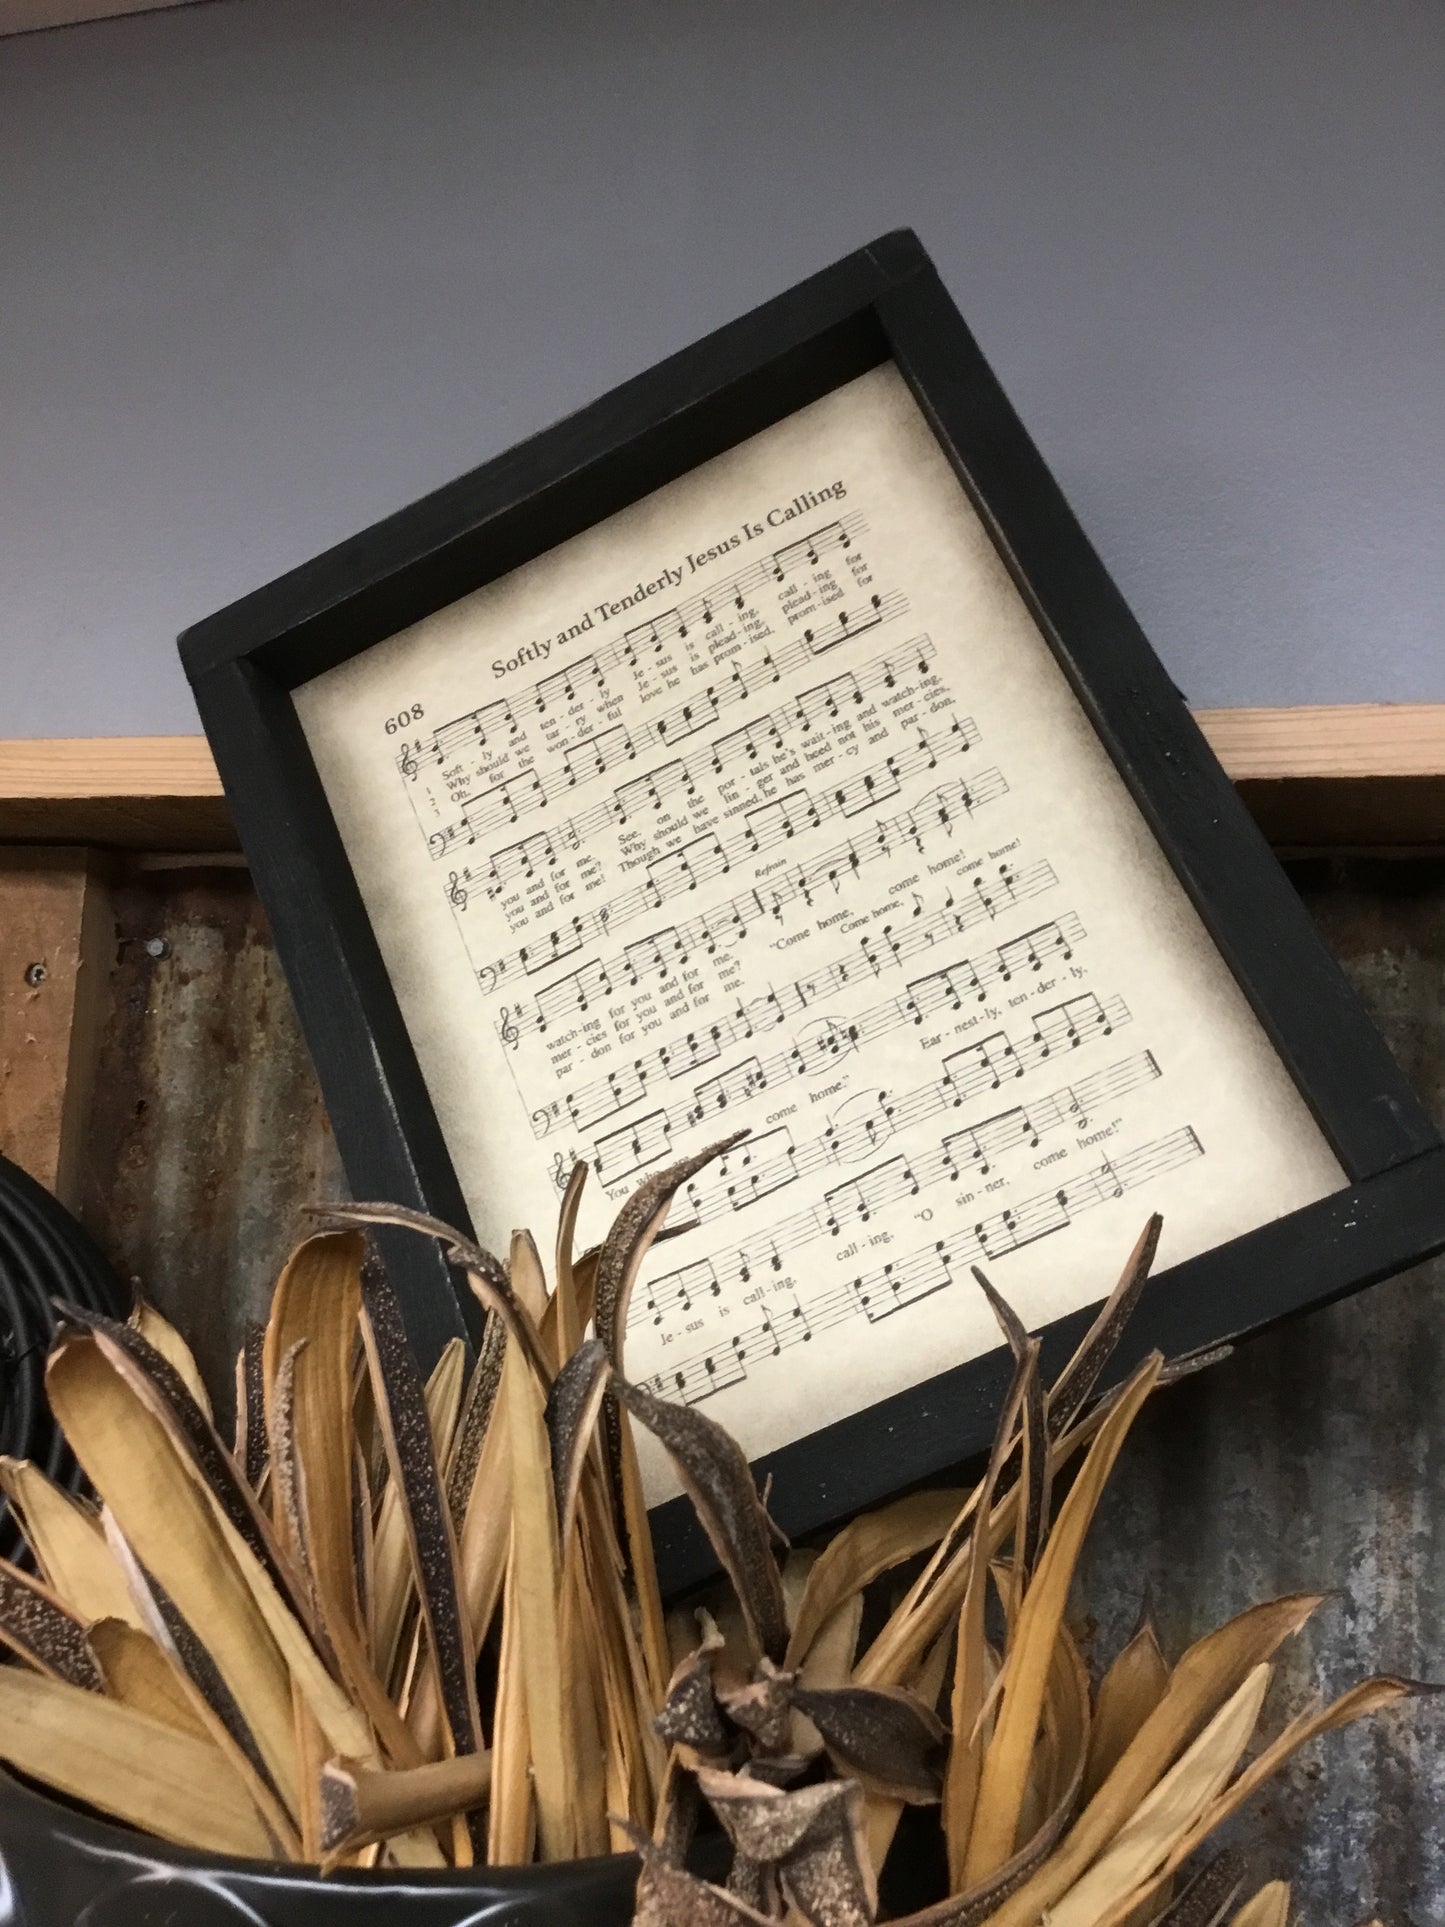 608
Softly and Tenderly Jesus Is Calling
1 Soft - ly and ten - der - ly Je - sus is call - ing, call - ing for
2 Why should we tar - ry when Je - sus is plead - ing, plead - ing for
3 Oh, for the won - der - ful love he has prom - ised, prom - ised for
you and for me. See, on the por - tals he's wait - ing and watch - ing,
you and for me? Why should we lin - ger and heed not his mer - cies,
you and for me! Though we have sinned, he has mer - cy and par - don,
Refrain
watch - ing for you and for me. "Come home, come home!
mer - cies for you and for me? Come home, come home!
par - don for you and for me.
You who come home." Ear - nest - ly, ten - der - ly,
Je - sus is call - ing, call - ing, "O sin - ner, come home!"